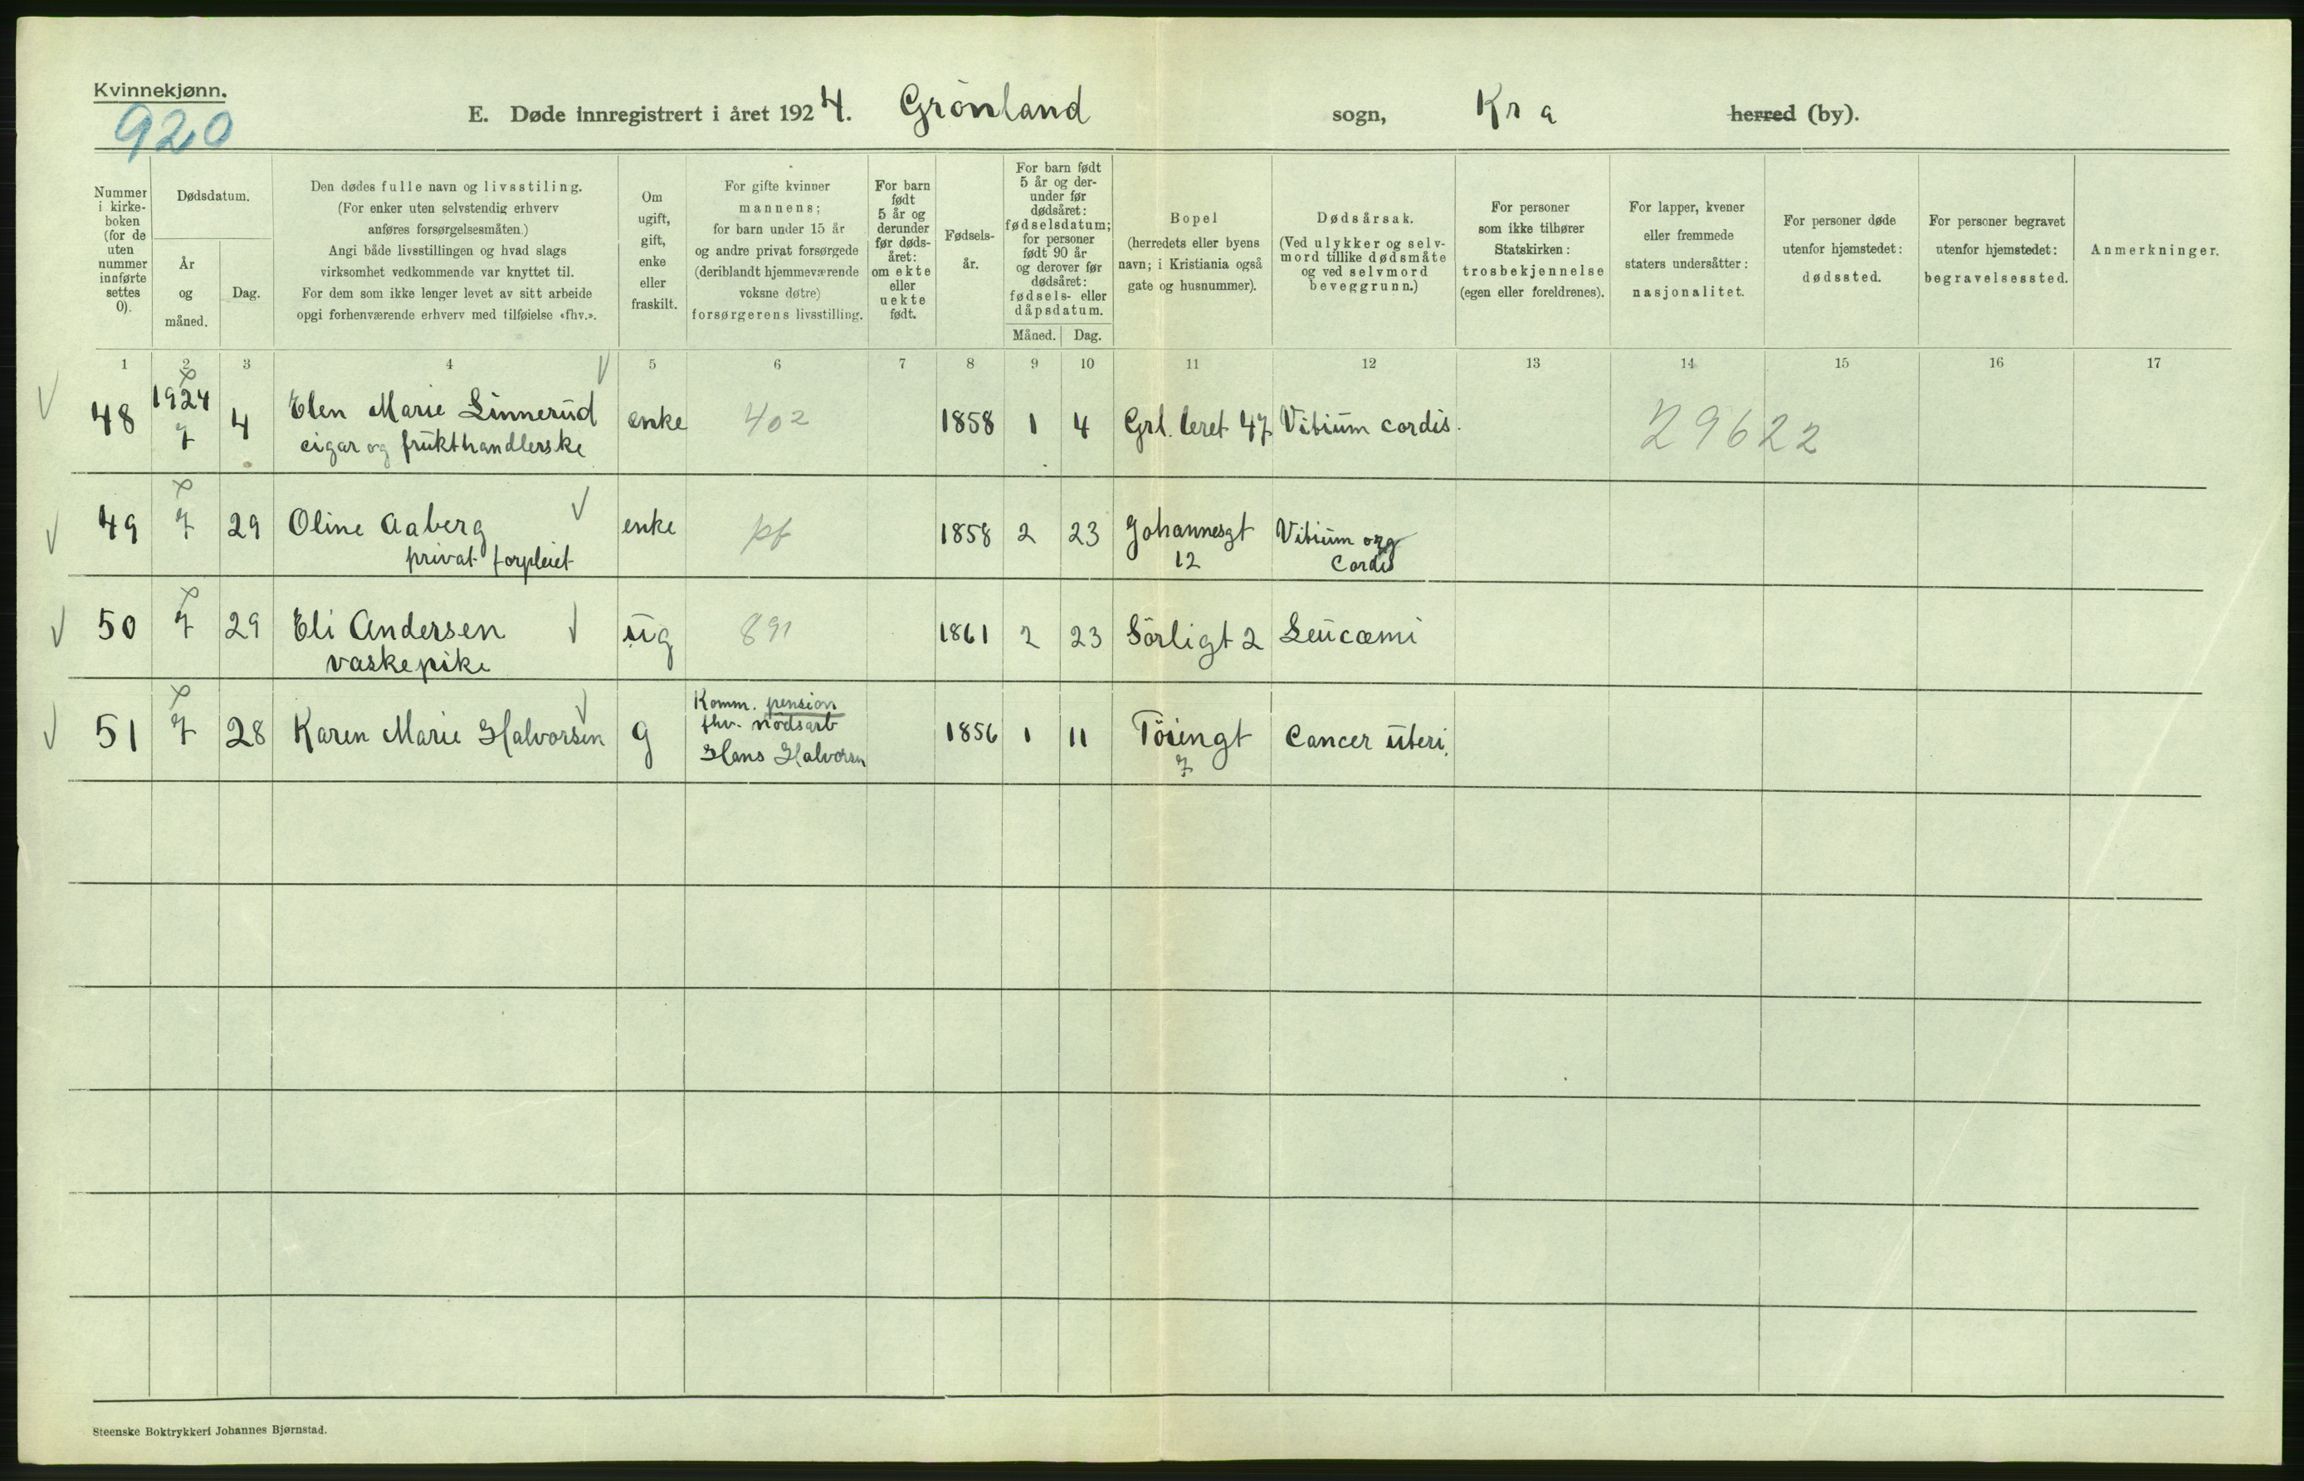 Kvinnekjønn.
920
E. Døde innregistrert i året 1924. Grönland sogn, Kr a herred (by).
Nummer i kirke-boken (for de uten nummer innførte settes 0).
Dødsdatum.
År og måned.
Dag.
Den dødes fulle navn og livsstiling.
(For enker uten selvstendig erhverv
anføres forsørgelsesmåten.)
Angi både livsstillingen og hvad slags
virksomhet vedkommende var knyttet til.
For dem som ikke lenger levet av sitt arbeide
opgi forhenværende erhverv med tilføielse «fhv.».
Om
ugift,
gift,
enke
eller
fraskilt.
For gifte kvinner
mannens;
for barn under 15 år
og andre privat forsørgede
(deriblandt hjemmeværende
voksne døtre)
forsørgerens livsstilling.
For barn
født
5 år og
derunder
før døds-
året:
om ekte
eller
uekte
født.
Fødsels-
år.
For barn født
5 år og der-
under før
dødsåret:
fødselsdatum;
for personer
født 90 år
og derover før
dødsåret:
fødsels- eller
dåpsdatum.
Måned.
Dag.
Bopel
(herredets eller byens
navn; i Kristiania også
gate og husnummer).
Dødsårsak.
(Ved ulykker og selv-
mord tillike dødsmåte
og ved selvmord
beveggrunn.)
For personer
som ikke tilhører
Statskirken:
trosbekjennelse
(egen eller foreldrenes).
For lapper, kvener
eller fremmede
staters undersåtter:
nasjonalitet.
For personer døde
utenfor hjemstedet:
dødssted.
For personer begravet
utenfor hjemstedet:
begravelsessted.
Anmerkninger.
1 2 3 4 5 6 7 8 9 10 11 12 13 14 15 16 17
48 1924 7 4 Elen Marie Linnerud enke 402 1858 1 4 Grl. leret 47 Vitium cordis. 29622
cigar og frukthandlerske
49 7 29 Oline Aaberg enke pf 1858 2 23 Johannesgt Vitium org
privat forpleiet 12 Cordis
50 7 29 Eli Andersen ug 891 1861 2 23 Sörligt 2 Leucæmi
vaskepike
51 7 28 Karen Marie Halvorsen g Komm. pension 1856 1 11 Töiengt Cancer uteri.
fhv. nödsarb
Hans Halvorsen 7
Steenske Boktrykkeri Johannes Bjørnstad.